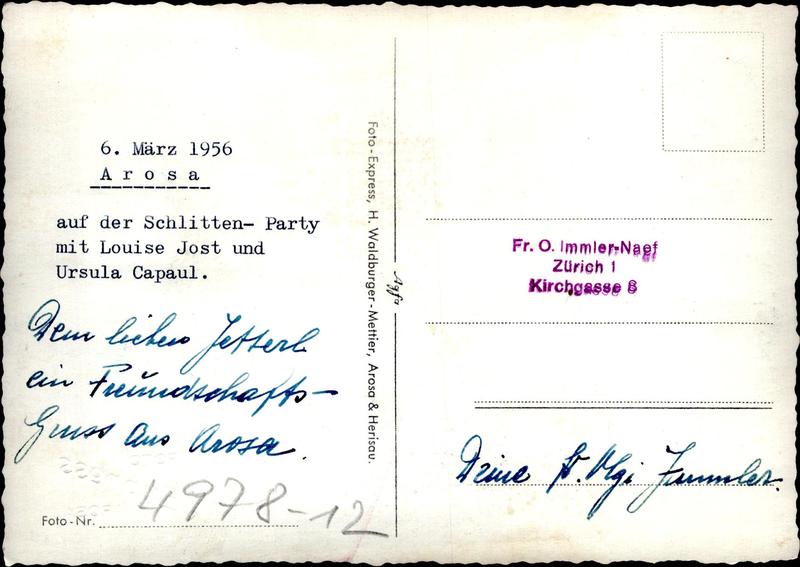 6. März 1956
Arosa
auf der Schlitten- Party
mit Louise Jost und
Ursula Capaul.
Dem lieben Jetterl
ein Freundschafts-
Gruss aus Arosa.
Foto-Nr. 4978-12
Foto-Express, H. Waldburger-Mettier, Arosa & Herisau.
Agfa
Fr. O. Immler-Naef
Zürich 1
Kirchgasse 8
Deine Olgi Immler.